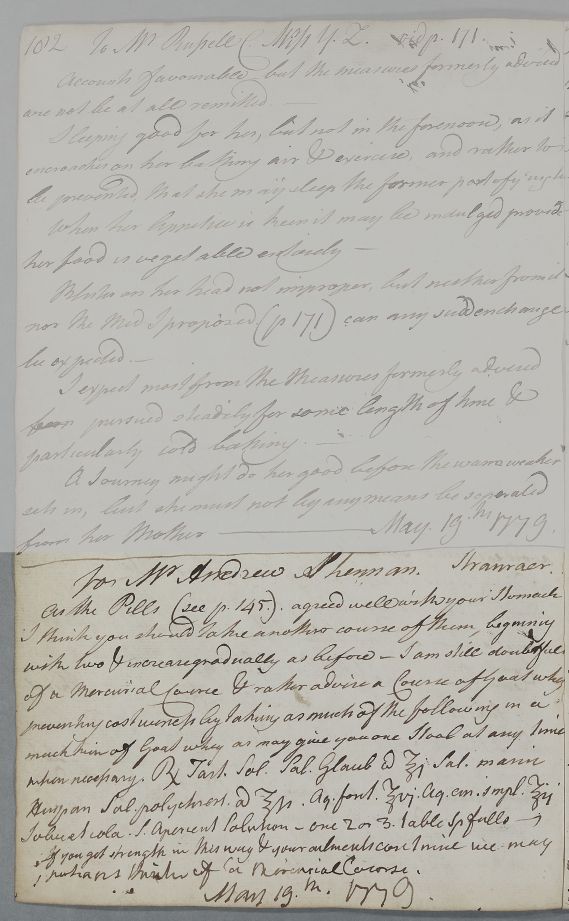 102 To Mr Russell (Miss Y. Z. vid p. 171.
Accounts favourable - but the measures formerly advised
are not be at all remitted. —
Sleeping good for her, but not in the forenoon, as it
encroaches on her bathing air & exercise, and rather to
be prevented, that she may sleep the former part of ye night
When her Appetite is keen it may be indulged provid
her food is vegetable entirely —
Blister on her head not improper, but neither from it
nor the Med I proposed (p 171) can any sudden change
be expected. —
I expect most from the Measures formerly advised
pursued steadily for some length of time &
particularly cold bathing. —
A Journey might do her good before the warm weather
sets in, but she must not by any means be separated
from her Mother — May. 19th 1779.
For Mr Andrew Shennan. Stranraer.
As the Pills (see p. 145). agreed well with your Stomach
I think you should take another course of them begining
with two & increase gradually as before - I am still doubtfull
of a Mercurial Course & rather advise a Course of Goat whey
preventing costiveness by taking as much of the following in a
much kin of Goat whey as may give you one Stool at any time
when necessary. ℞ Tart. Sol. Sal. Glaub a ʒj Sal. marin
Hispan Sal. polychrest. a ʒss. Aq. font. ʒvj. Aq. cin. simpl. ʒij
Solve et cola. S. Aperient Solution - one 2 or 3. table Spfulls —
If you get strength in this way & your ailments continue we may
perhaps think of a Mercurial Course.
May 19th. 1779.